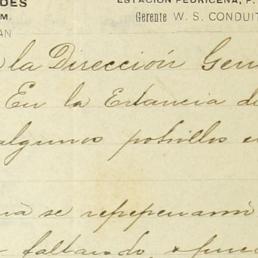 DES
ESTACION PEORICENA, F.
M.
Gerente W. S. CONDUIT
AN
la Dirección Gen
En la Estancia de
algunos potrillos e
se
faltando,